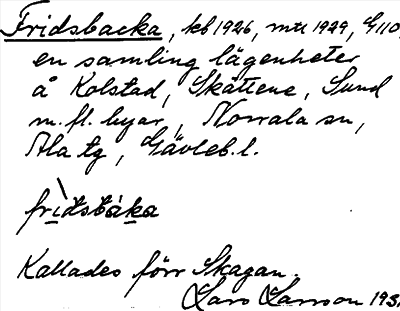 Fridsbacka, kb 1926, mtl 1929, G110,
en samling lägenheter
å Kolstad, Skättene, Sund
m. fl. byar, Norrala sn,
Ala tg, Gävleb. l.
fridsbáka
Kallades förr Skagan.
Lars Larsson 193